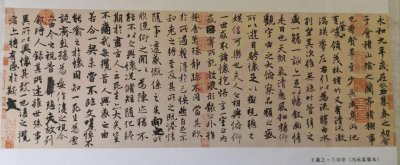 永和九年歲在癸丑暮春之初會
于會稽山陰之蘭亭脩稧事
也群賢畢至少長咸集此地
有崇山峻領茂林脩竹又有清流激
湍暎帶左右引以為流觴曲水
列坐其次雖無絲竹管弦之
盛一觴一詠亦足以暢敘幽情
是日也天朗氣清惠風和暢仰
觀宇宙之大俯察品類之盛
所以遊目騁懷足以極視聽之
娛信可樂也夫人之相與俯仰
一世或取諸懷抱悟言一室之內
或因寄所託放浪形骸之外雖
趣舍萬殊靜躁不同當其欣
於所遇蹔得於己怏然自足不
知老之將至及其所之既惓情
隨事遷感慨係之矣向之所
欣俛仰之閒以為陳跡猶不
能不以之興懷況脩短隨化終
期於盡古人云死生亦大矣豈
不痛哉每攬昔人興感之由
若合一契未嘗不臨文嗟悼不
能喻之於懷固知一死生為虛
誕齊彭殤為妄作後之視今
亦由今之視昔悲夫故列
敘時人錄其所述雖世殊事
異所以興懷其致一也後之攬
者亦將有感於斯文
王羲之·兰亭序（冯承素摹本）